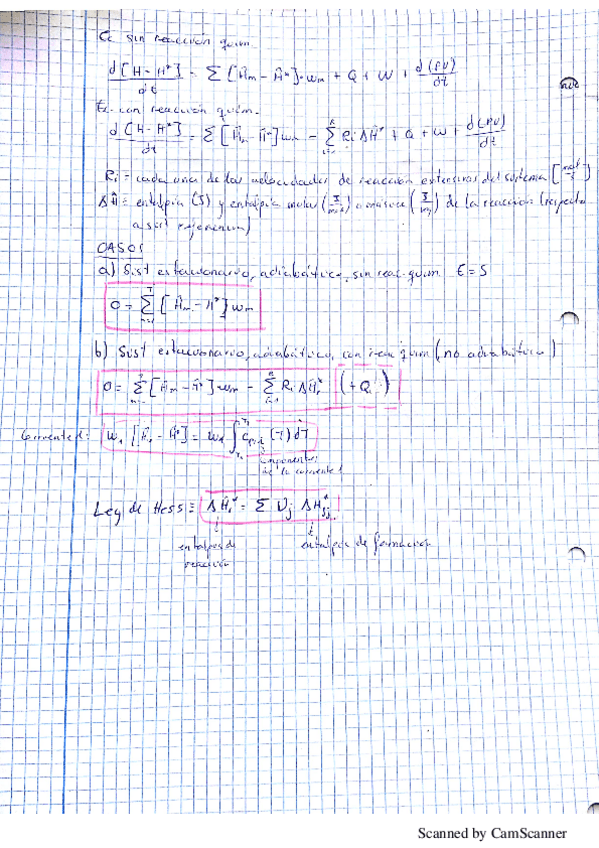 Ec sin reacción quim.
d[H-H*]/dt = Σ[Ĥm - Ĥ*]·wm + Q + W + d(PV)/dt
Ec con reacción quim.
d[H-H*]/dt = Σ[Ĥm - Ĥ*]wm - Σ Ri ΔH* + Q + W + d(PV)/dt
Ri = cada una de las velocidades de reacción extensivas del sistema [mol/s]
ΔĤ = entalpía (J) y entalpía molar (J/mol) o másica (J/kg) de la reacción (respecto
a su referencia)
CASOS
a) Sist estacionario, adiabático, sin reac. quim E=S
0 = Σ[Ĥm - H*]wm
b) Sist estacionario, adiabático, con reac quim (no adiabático)
0 = Σ[Ĥm - Ĥ*]wm - Σ Ri ΔHi* (+Q)
Corriente 1: w1[Ĥ1 - Ĥ*] = w1 ∫ Cp (T) dT
componentes
de la corriente 1
Ley de Hess ≡ ΔHi* = Σ νj ΔHfj*
entalpía de entalpía de formación
reacción
Scanned by CamScanner